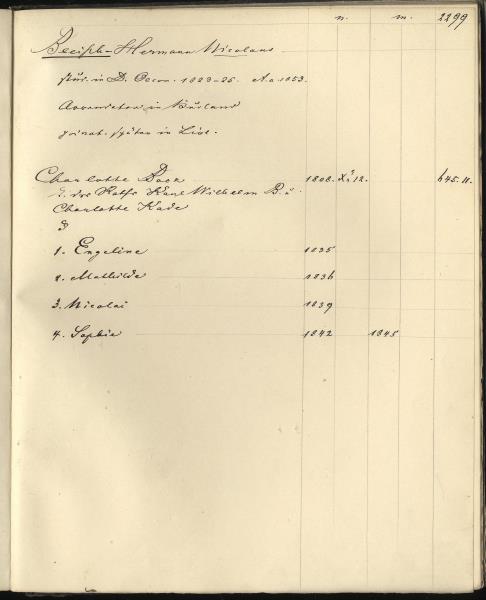 n. m. 2299
Hermann Nicolaus
stud. in D. Oecon. 1823-25. A. a. 1053.
in Kurland
privat. später in Livl.
Charlotte 1808. XI 12. 645. 11.
T. des Raths Karl Wilhelm B. u.
Charlotte Kade
1. Engeline 1835
2. Mathilde 1836
3. Nicolai 1839
4. Sophie 1842 1845